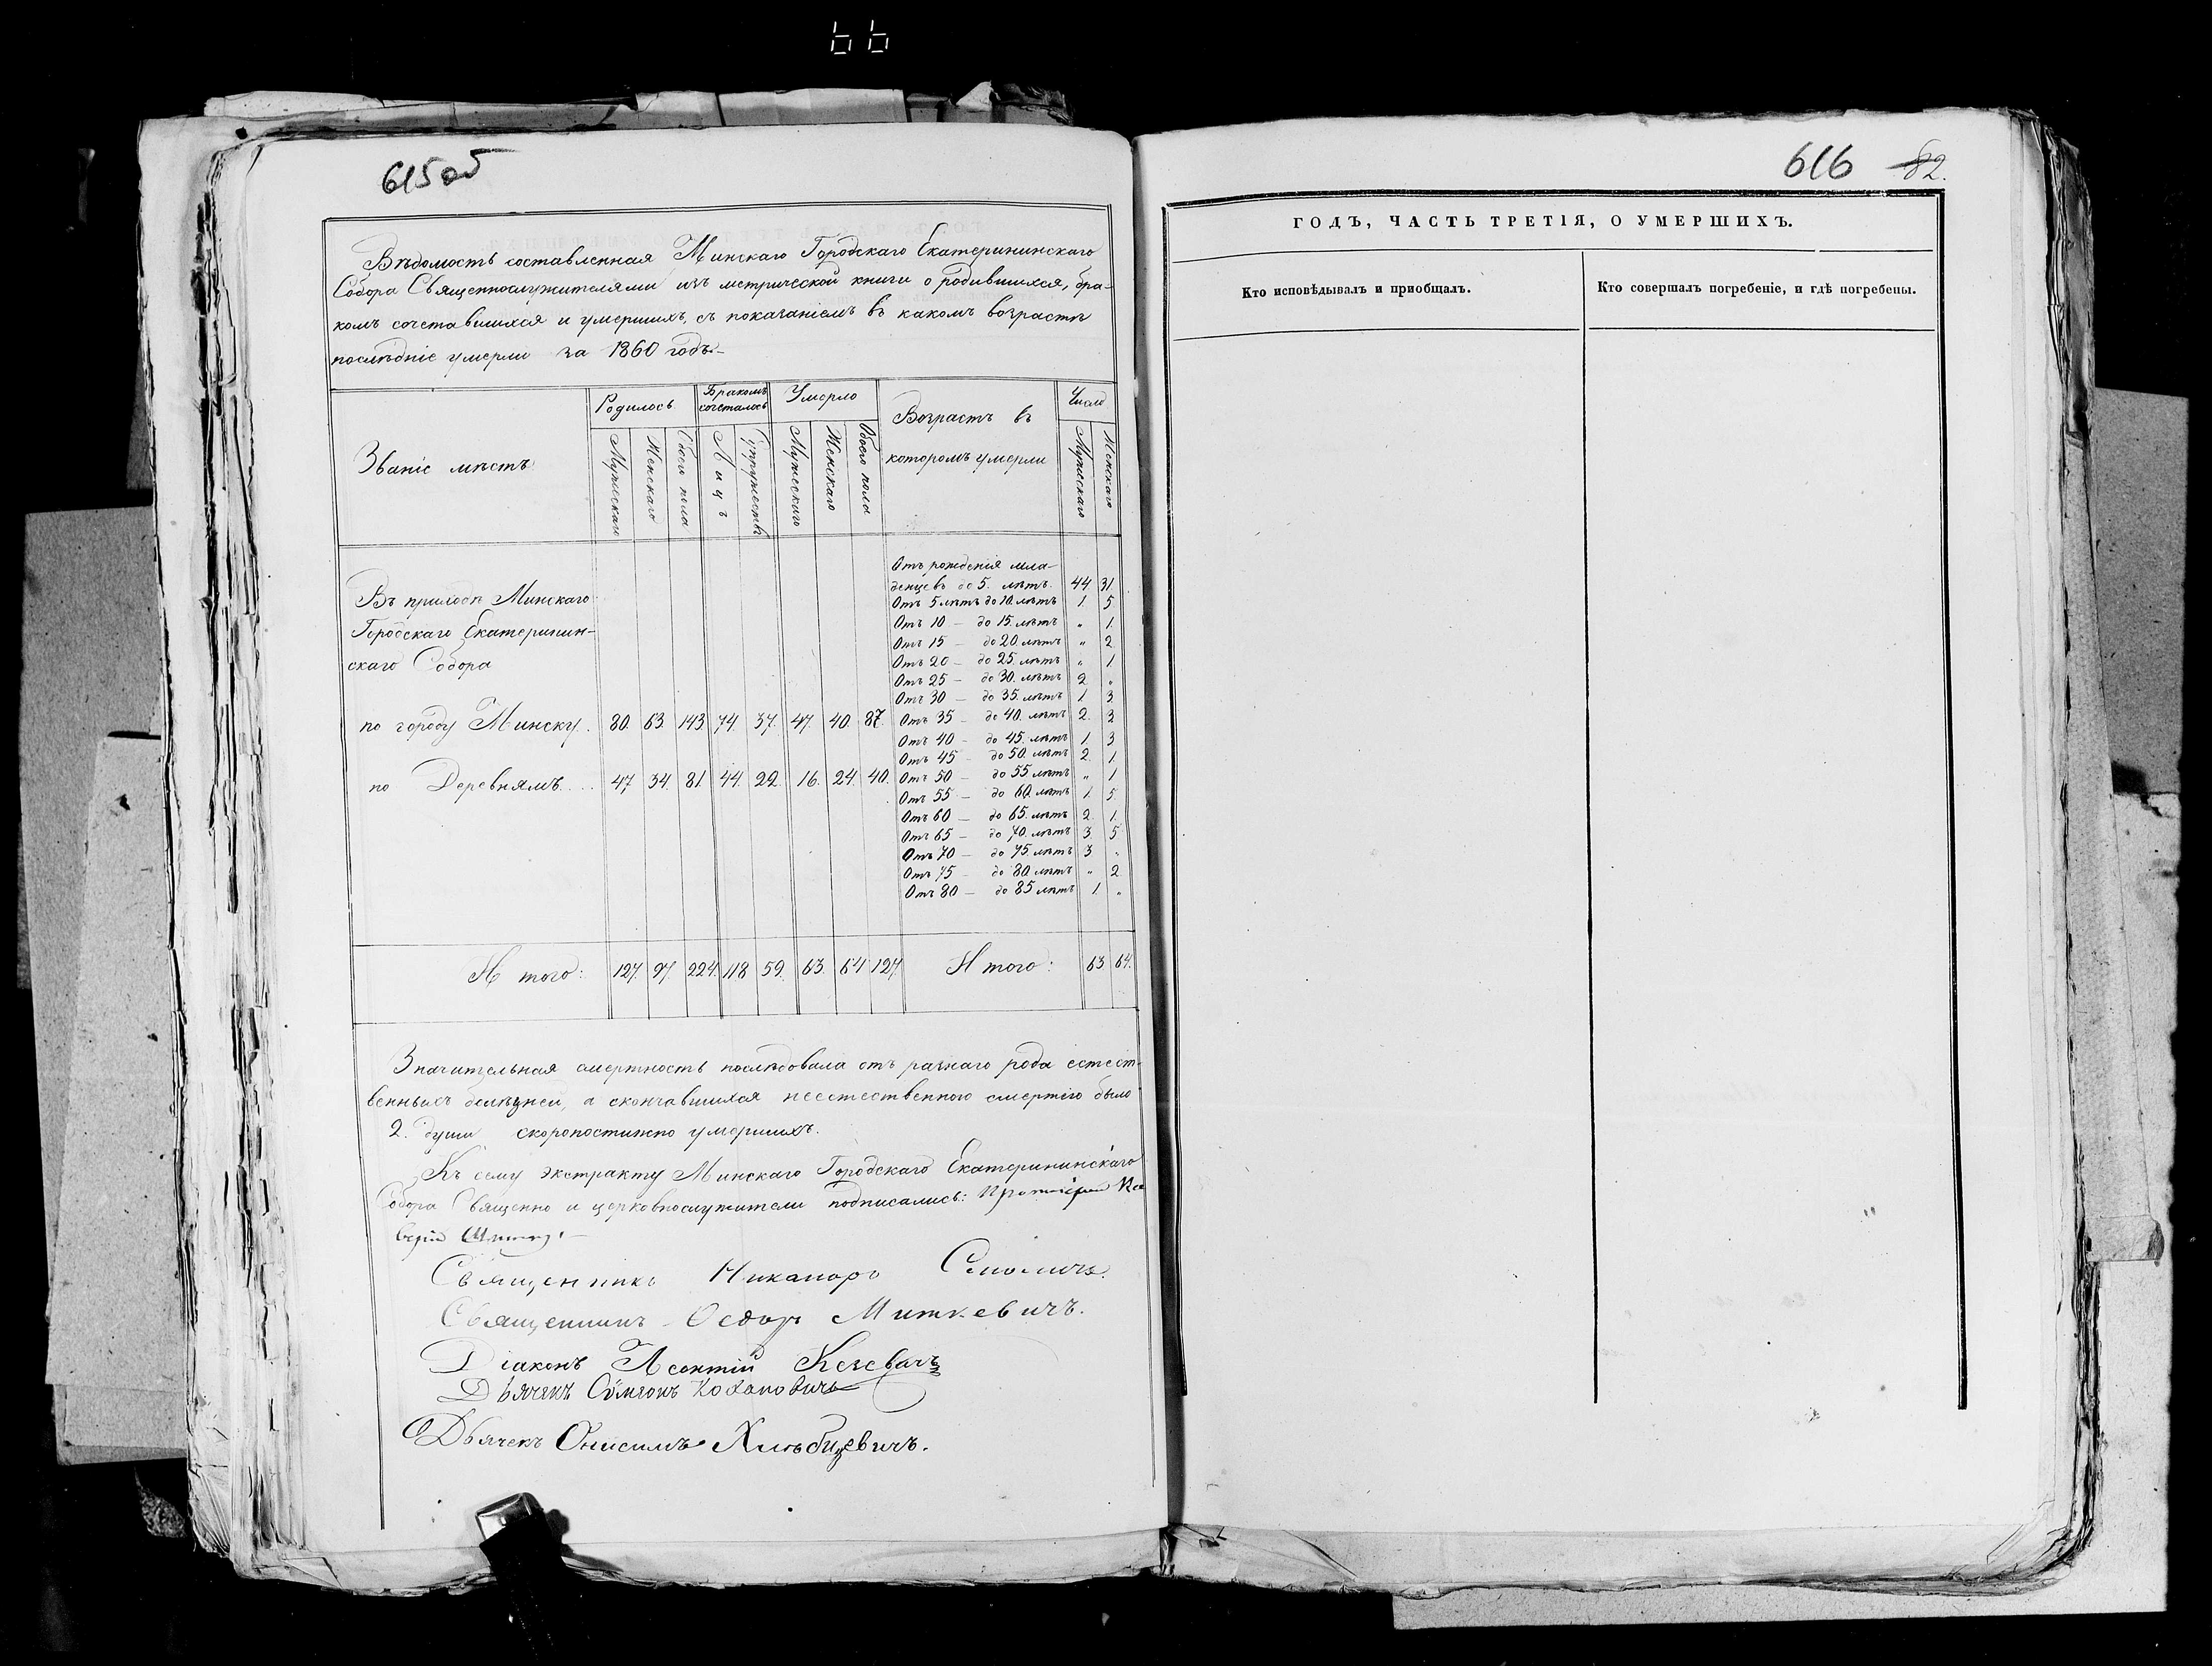 66
615об
Вѣдомость составленная Минскаго Городскаго Екатерининскаго
Собора Священнослужителями изъ метрической книги о родившихся, бра-
комъ сочетавшихся и умершихъ, съ показаніемъ въ какомъ возрастѣ
послѣдніе умерли за 1860 годъ.
Званіе мѣстъ
Родилось
Бракомъ сочеталось
Умерло
Возрастъ въ которомъ умерли
Число
Мужескаго
Женскаго
Обоего пола
Лицъ
Супружествъ
Мужескаго
Женскаго
Обоего пола
Мужескаго
Женскаго
Въ приходѣ Минскаго
Городскаго Екатеринин-
скаго Собора
по городу Минску . 80. 63. 143. 74. 37. 47. 40. 87.
по Деревнямъ.... 47 34. 81. 44. 22. 16. 24. 40.
Отъ рожденія мла-
денцевъ до 5. лѣтъ. 44 31.
Отъ 5 лѣтъ до 10. лѣтъ 1. 5
Отъ 10 — до 15. лѣтъ „ 1.
Отъ 15 — до 20. лѣтъ „ 2
Отъ 20 — до 25. лѣтъ „ 1
Отъ 25 — до 30. лѣтъ 2 „
Отъ 30 — до 35. лѣтъ 1 3
Отъ 35 — до 40. лѣтъ 2. 3
Отъ 40 — до 45. лѣтъ 1. 3
Отъ 45 — до 50. лѣтъ 2. 1.
Отъ 50 — до 55 лѣтъ „ 1
Отъ 55 — до 60. лѣтъ 1. 5.
Отъ 60 — до 65. лѣтъ 2. 1.
Отъ 65 — до 70. лѣтъ 3. 5
Отъ 70 — до 75. лѣтъ 3 „
Отъ 75 — до 80. лѣтъ „ 2
Отъ 80 — до 85 лѣтъ 1. „
И того: 127. 97. 224. 118 59. 63. 64 127 И того: 63 64.
Значительная смертность послѣдовала отъ разнаго рода естест-
венныхъ болѣзней, а скончавшихся неестественною смертію было
2. души скоропостижно умершихъ.
Къ сему экстракту Минскаго Городскаго Екатерининскаго
Собора Священно и церковнослужители подписались: Протоіерей
Священникъ Никаноръ Смоличъ.
Священникъ Ѳеодоръ Миткевичъ.
Діаконъ Леонтій
Дьячекъ Сѵмеонъ
Дьячекъ Онисимъ Хлѣбцевичъ.
616 82.
ГОДЪ, ЧАСТЬ ТРЕТІЯ, О УМЕРШИХЪ.
Кто исповѣдывалъ и пріобщалъ.
Кто совершалъ погребеніе, и гдѣ погребены.